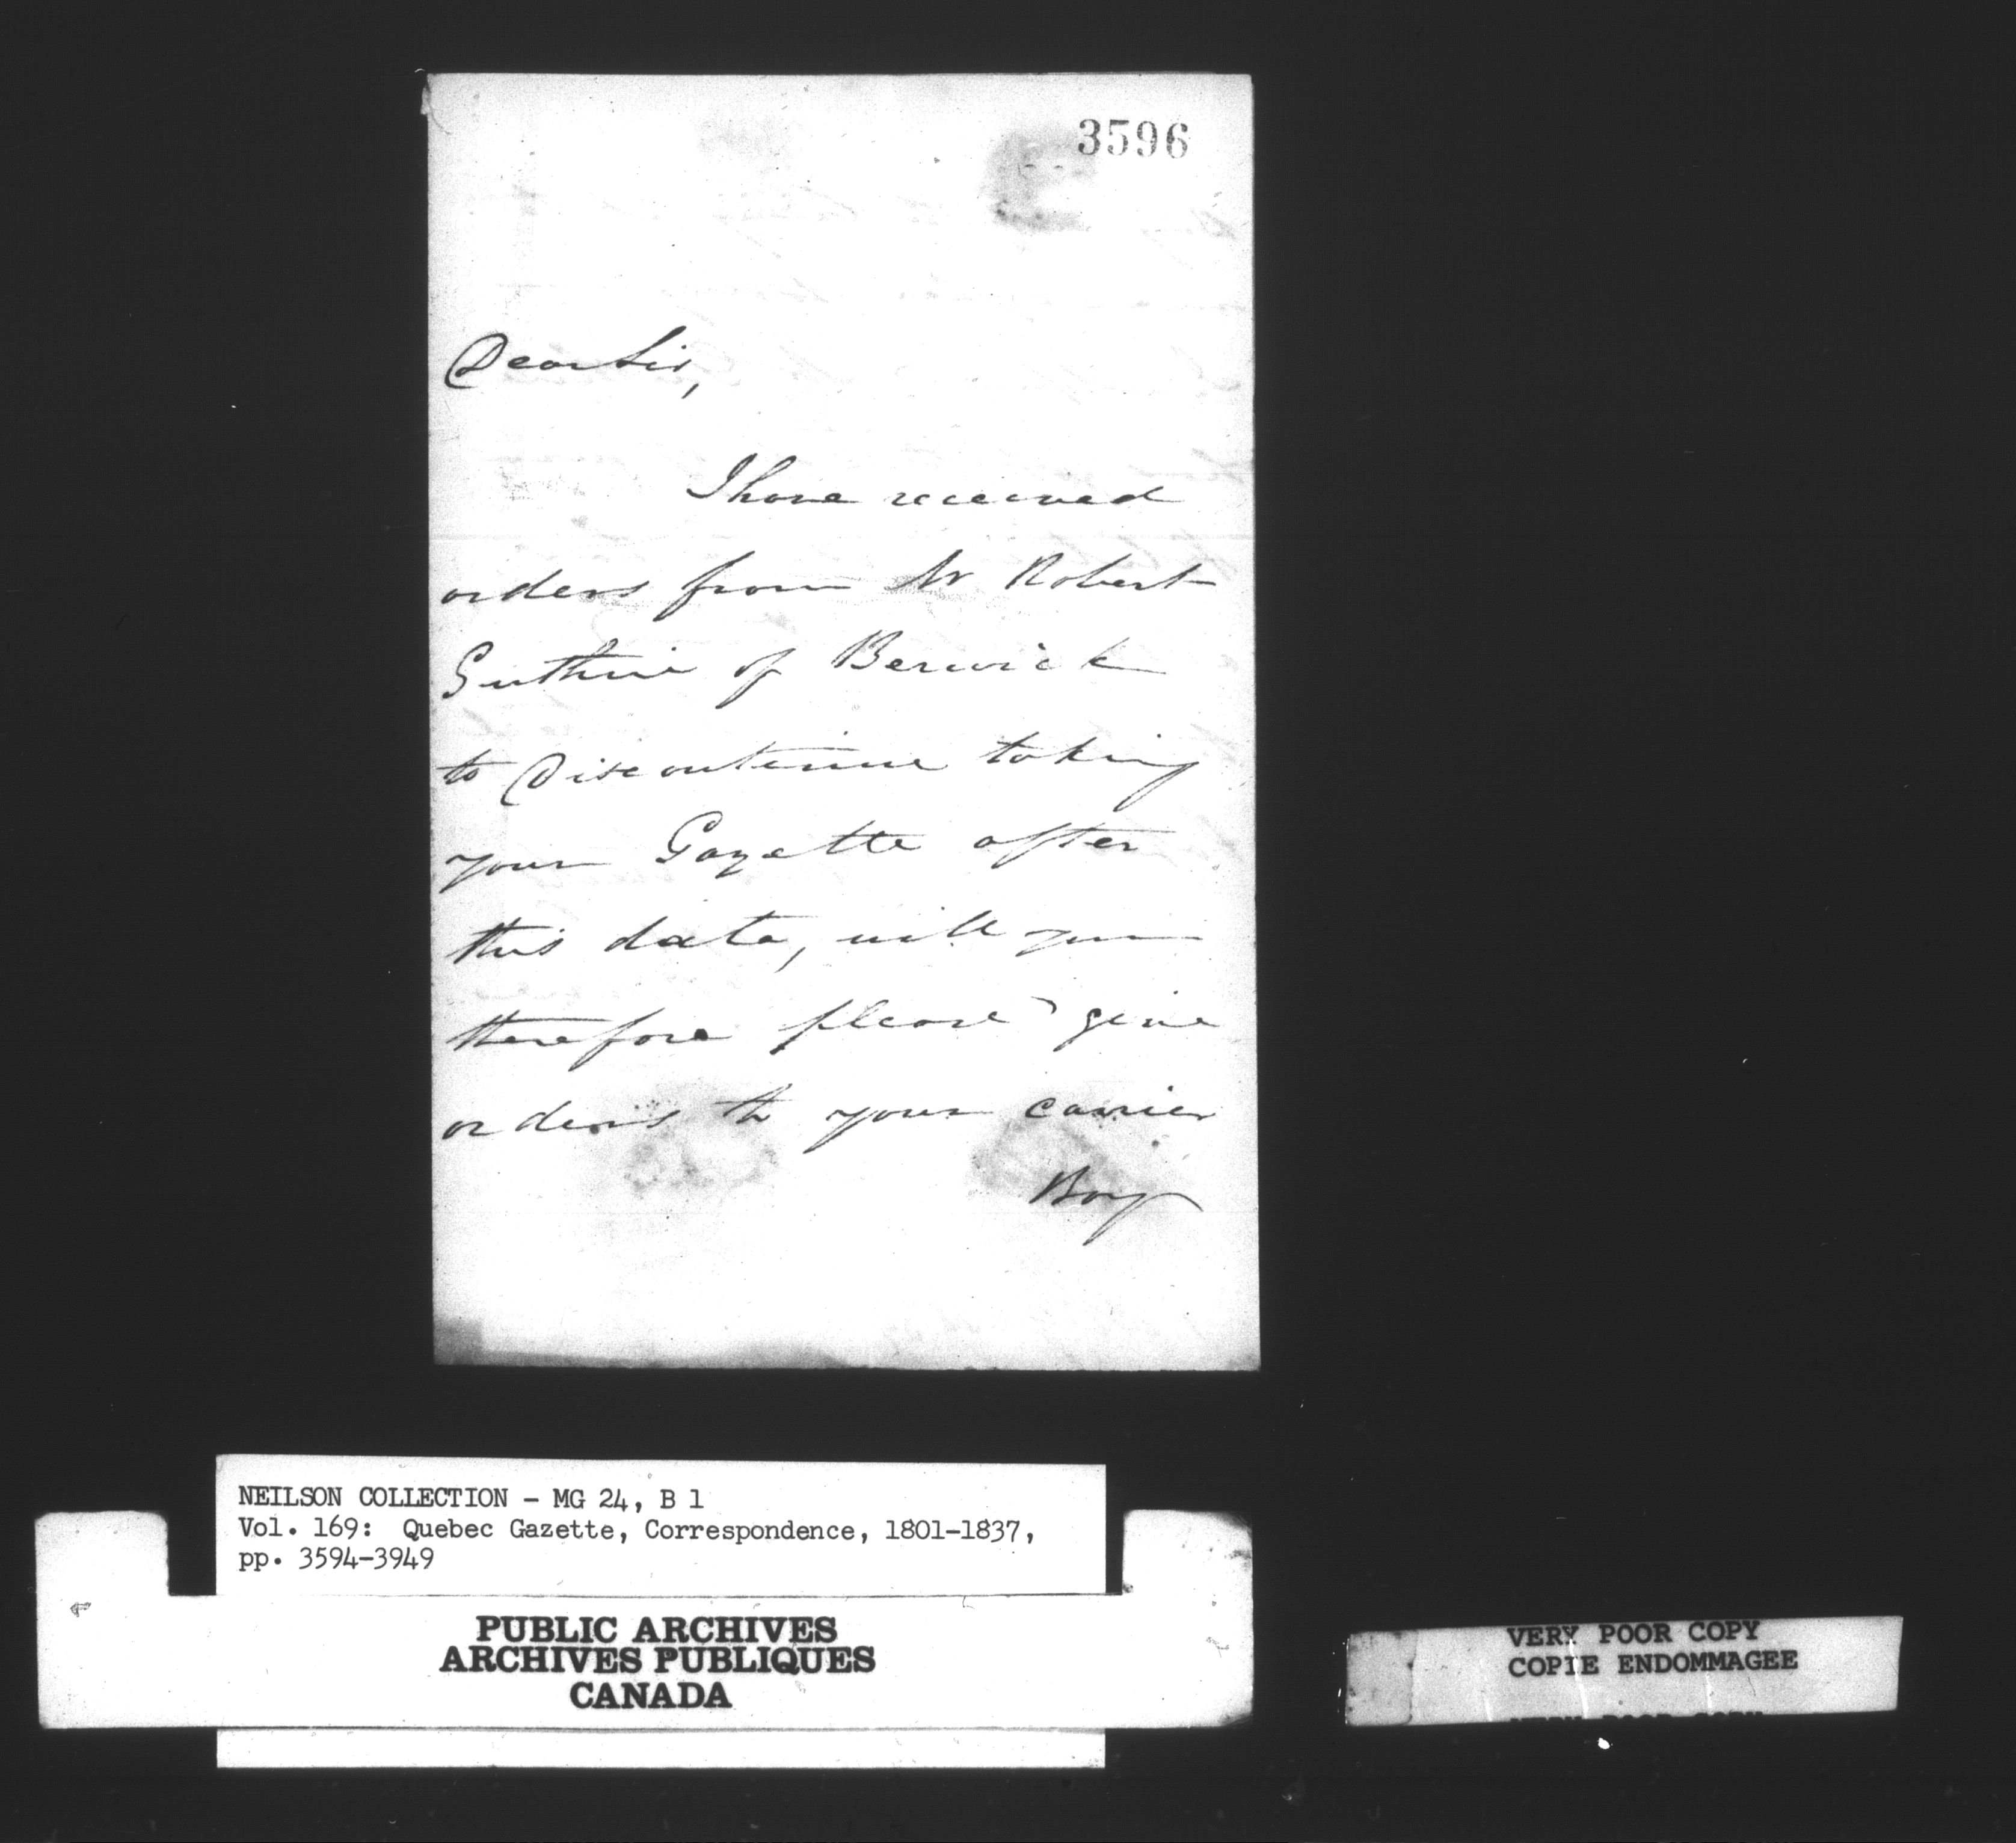 3596
Dear Sir,
I have received
orders from Mr Robert
Guthrie of Berwick
to Discontinue taking
your Gazette after
this date, will you
therefore please give
orders to your carrier
Boy
NEILSON COLLECTION - MG 24, B 1
Vol. 169: Quebec Gazette, Correspondence, 1801-1837,
pp. 3594-3949
PUBLIC ARCHIVES
ARCHIVES PUBLIQUES
CANADA
VERY POOR COPY
COPIE ENDOMMAGEE
VERY POOR COPY